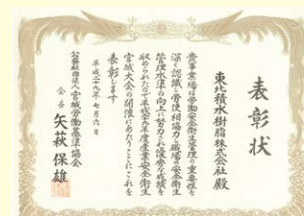 表彰状
東北積水樹脂株式会社殿
貴事業場は労働安全衛生管理の重要性を
深く認識し労使相協力し職場の安全衛生
管理水準の向上に努力され優秀な成績を
収められたので平成二十九年度産業安全衛生
宮城大会の開催にあたりここにこれを
表彰します
平成二十九年七月六日
公益社団法人宮城労働基準協会
会長 矢萩保雄